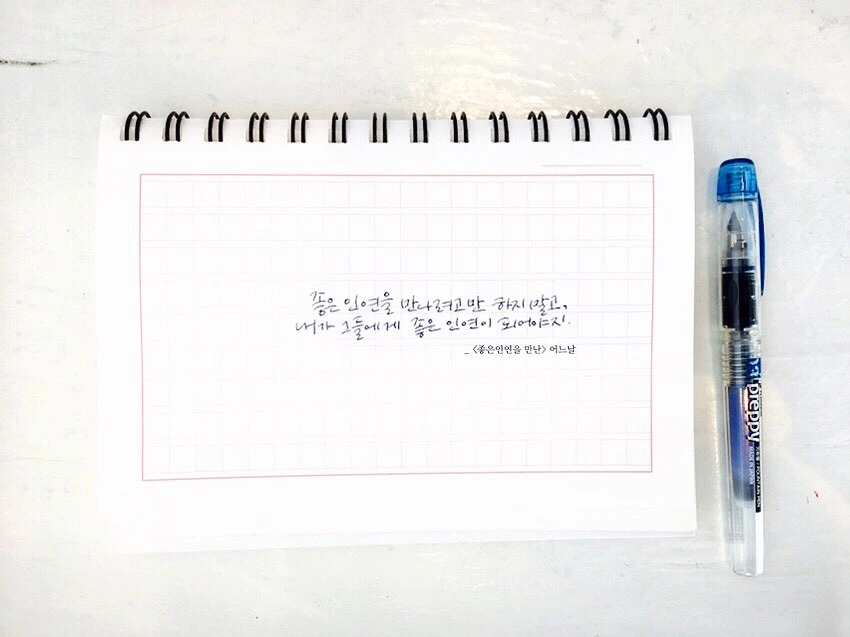 좋은 인연을 만나려고만 하지 말고,
내가 그들에게 좋은 인연이 되어야지.
_ <좋은인연을 만난> 어느날
preppy
MADE IN JAPAN